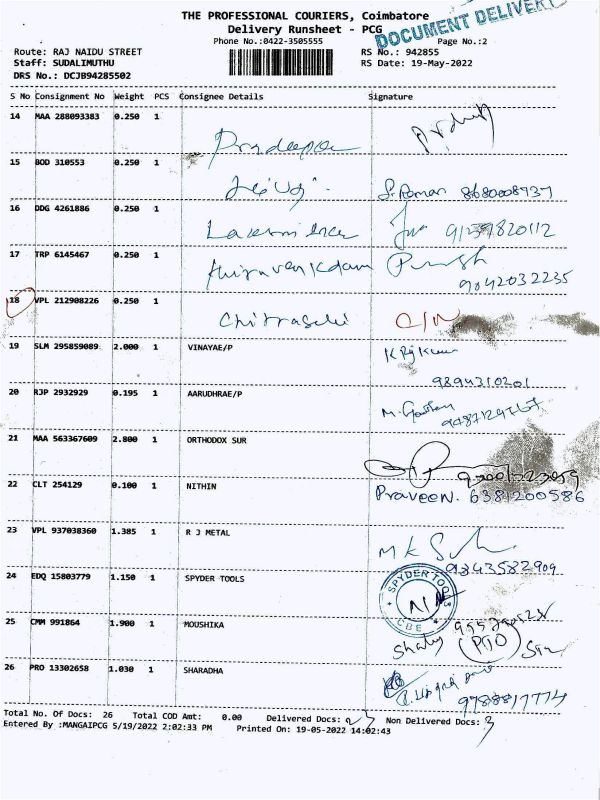 THE PROFESSIONAL COURIERS, Coimbatore
DOCUMENT DELIVERY
Delivery Runsheet - PCG
Phone No.:0422-3505555 Page No.:2
Route: RAJ NAIDU STREET RS No.: 942855
Staff: SUDALIMUTHU RS Date: 19-May-2022
DRS No.: DCJB94285502
S No Consignment No Weight PCS Consignee Details Signature
14 MAA 288093383 0.250 1 Pradeepa
15 BOD 310553 0.250 1 S. Raman 8680008737
16 DDG 4261886 0.250 1
17 TRP 6145467 0.250 1 9042032235
18 VPL 212908226 0.250 1
19 SLM 295859089 2.000 1 VINAYAE/P
9894310201
20 RJP 2932929 0.195 1 AARUDHRAE/P
21 MAA 563367609 2.800 1 ORTHODOX SUR
22 CLT 254129 0.100 1 NITHIN Praveen. 6381200586
23 VPL 937038360 1.385 1 R J METAL
9343582909
24 EDQ 15803779 1.150 1 SPYDER TOOLS SPYDER TOOLS CBE
25 CMM 991864 1.900 1 MOUSHIKA
26 PRO 13302658 1.030 1 SHARADHA
9788817774
Total No. Of Docs: 26 Total COD Amt: 0.00 Delivered Docs: 23 Non Delivered Docs: 3
Entered By :MANGAIPCG 5/19/2022 2:02:33 PM Printed On: 19-05-2022 14:02:43